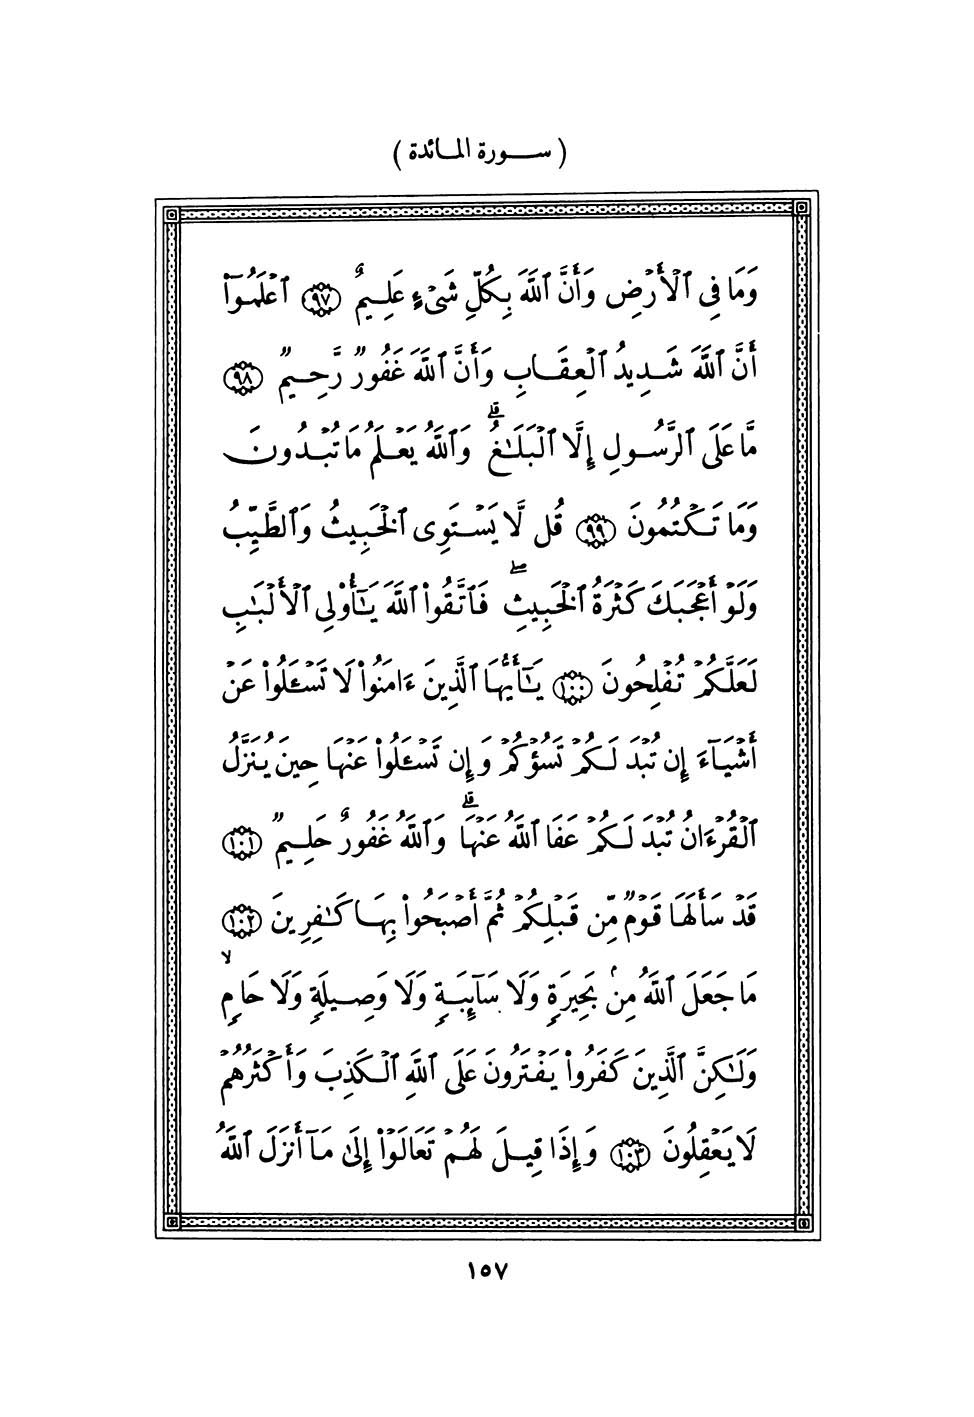 ( سورة المائدة )
وَمَا فِى ٱلْأَرْضِ وَأَنَّ ٱللَّهَ بِكُلِّ شَىْءٍ عَلِيمٌ ٩٧ ٱعْلَمُوٓا۟
أَنَّ ٱللَّهَ شَدِيدُ ٱلْعِقَابِ وَأَنَّ ٱللَّهَ غَفُورٌ رَّحِيمٌ ٩٨
مَّا عَلَى ٱلرَّسُولِ إِلَّا ٱلْبَلَٰغُ ۗ وَٱللَّهُ يَعْلَمُ مَا تُبْدُونَ
وَمَا تَكْتُمُونَ ٩٩ قُل لَّا يَسْتَوِى ٱلْخَبِيثُ وَٱلطَّيِّبُ
وَلَوْ أَعْجَبَكَ كَثْرَةُ ٱلْخَبِيثِ ۖ فَٱتَّقُوا۟ ٱللَّهَ يَٰٓأُو۟لِى ٱلْأَلْبَٰبِ
لَعَلَّكُمْ تُفْلِحُونَ ١٠٠ يَٰٓأَيُّهَا ٱلَّذِينَ ءَامَنُوا۟ لَا تَسْـَٔلُوا۟ عَنْ
أَشْيَآءَ إِن تُبْدَ لَكُمْ تَسُؤْكُمْ وَإِن تَسْـَٔلُوا۟ عَنْهَا حِينَ يُنَزَّلُ
ٱلْقُرْءَانُ تُبْدَ لَكُمْ عَفَا ٱللَّهُ عَنْهَا ۗ وَٱللَّهُ غَفُورٌ حَلِيمٌ ١٠١
قَدْ سَأَلَهَا قَوْمٌ مِّن قَبْلِكُمْ ثُمَّ أَصْبَحُوا۟ بِهَا كَٰفِرِينَ ١٠٢
مَا جَعَلَ ٱللَّهُ مِنۢ بَحِيرَةٍ وَلَا سَآئِبَةٍ وَلَا وَصِيلَةٍ وَلَا حَامٍ ۙ
وَلَٰكِنَّ ٱلَّذِينَ كَفَرُوا۟ يَفْتَرُونَ عَلَى ٱللَّهِ ٱلْكَذِبَ وَأَكْثَرُهُمْ
لَا يَعْقِلُونَ ١٠٣ وَإِذَا قِيلَ لَهُمْ تَعَالَوْا۟ إِلَىٰ مَآ أَنزَلَ ٱللَّهُ
١٥٧